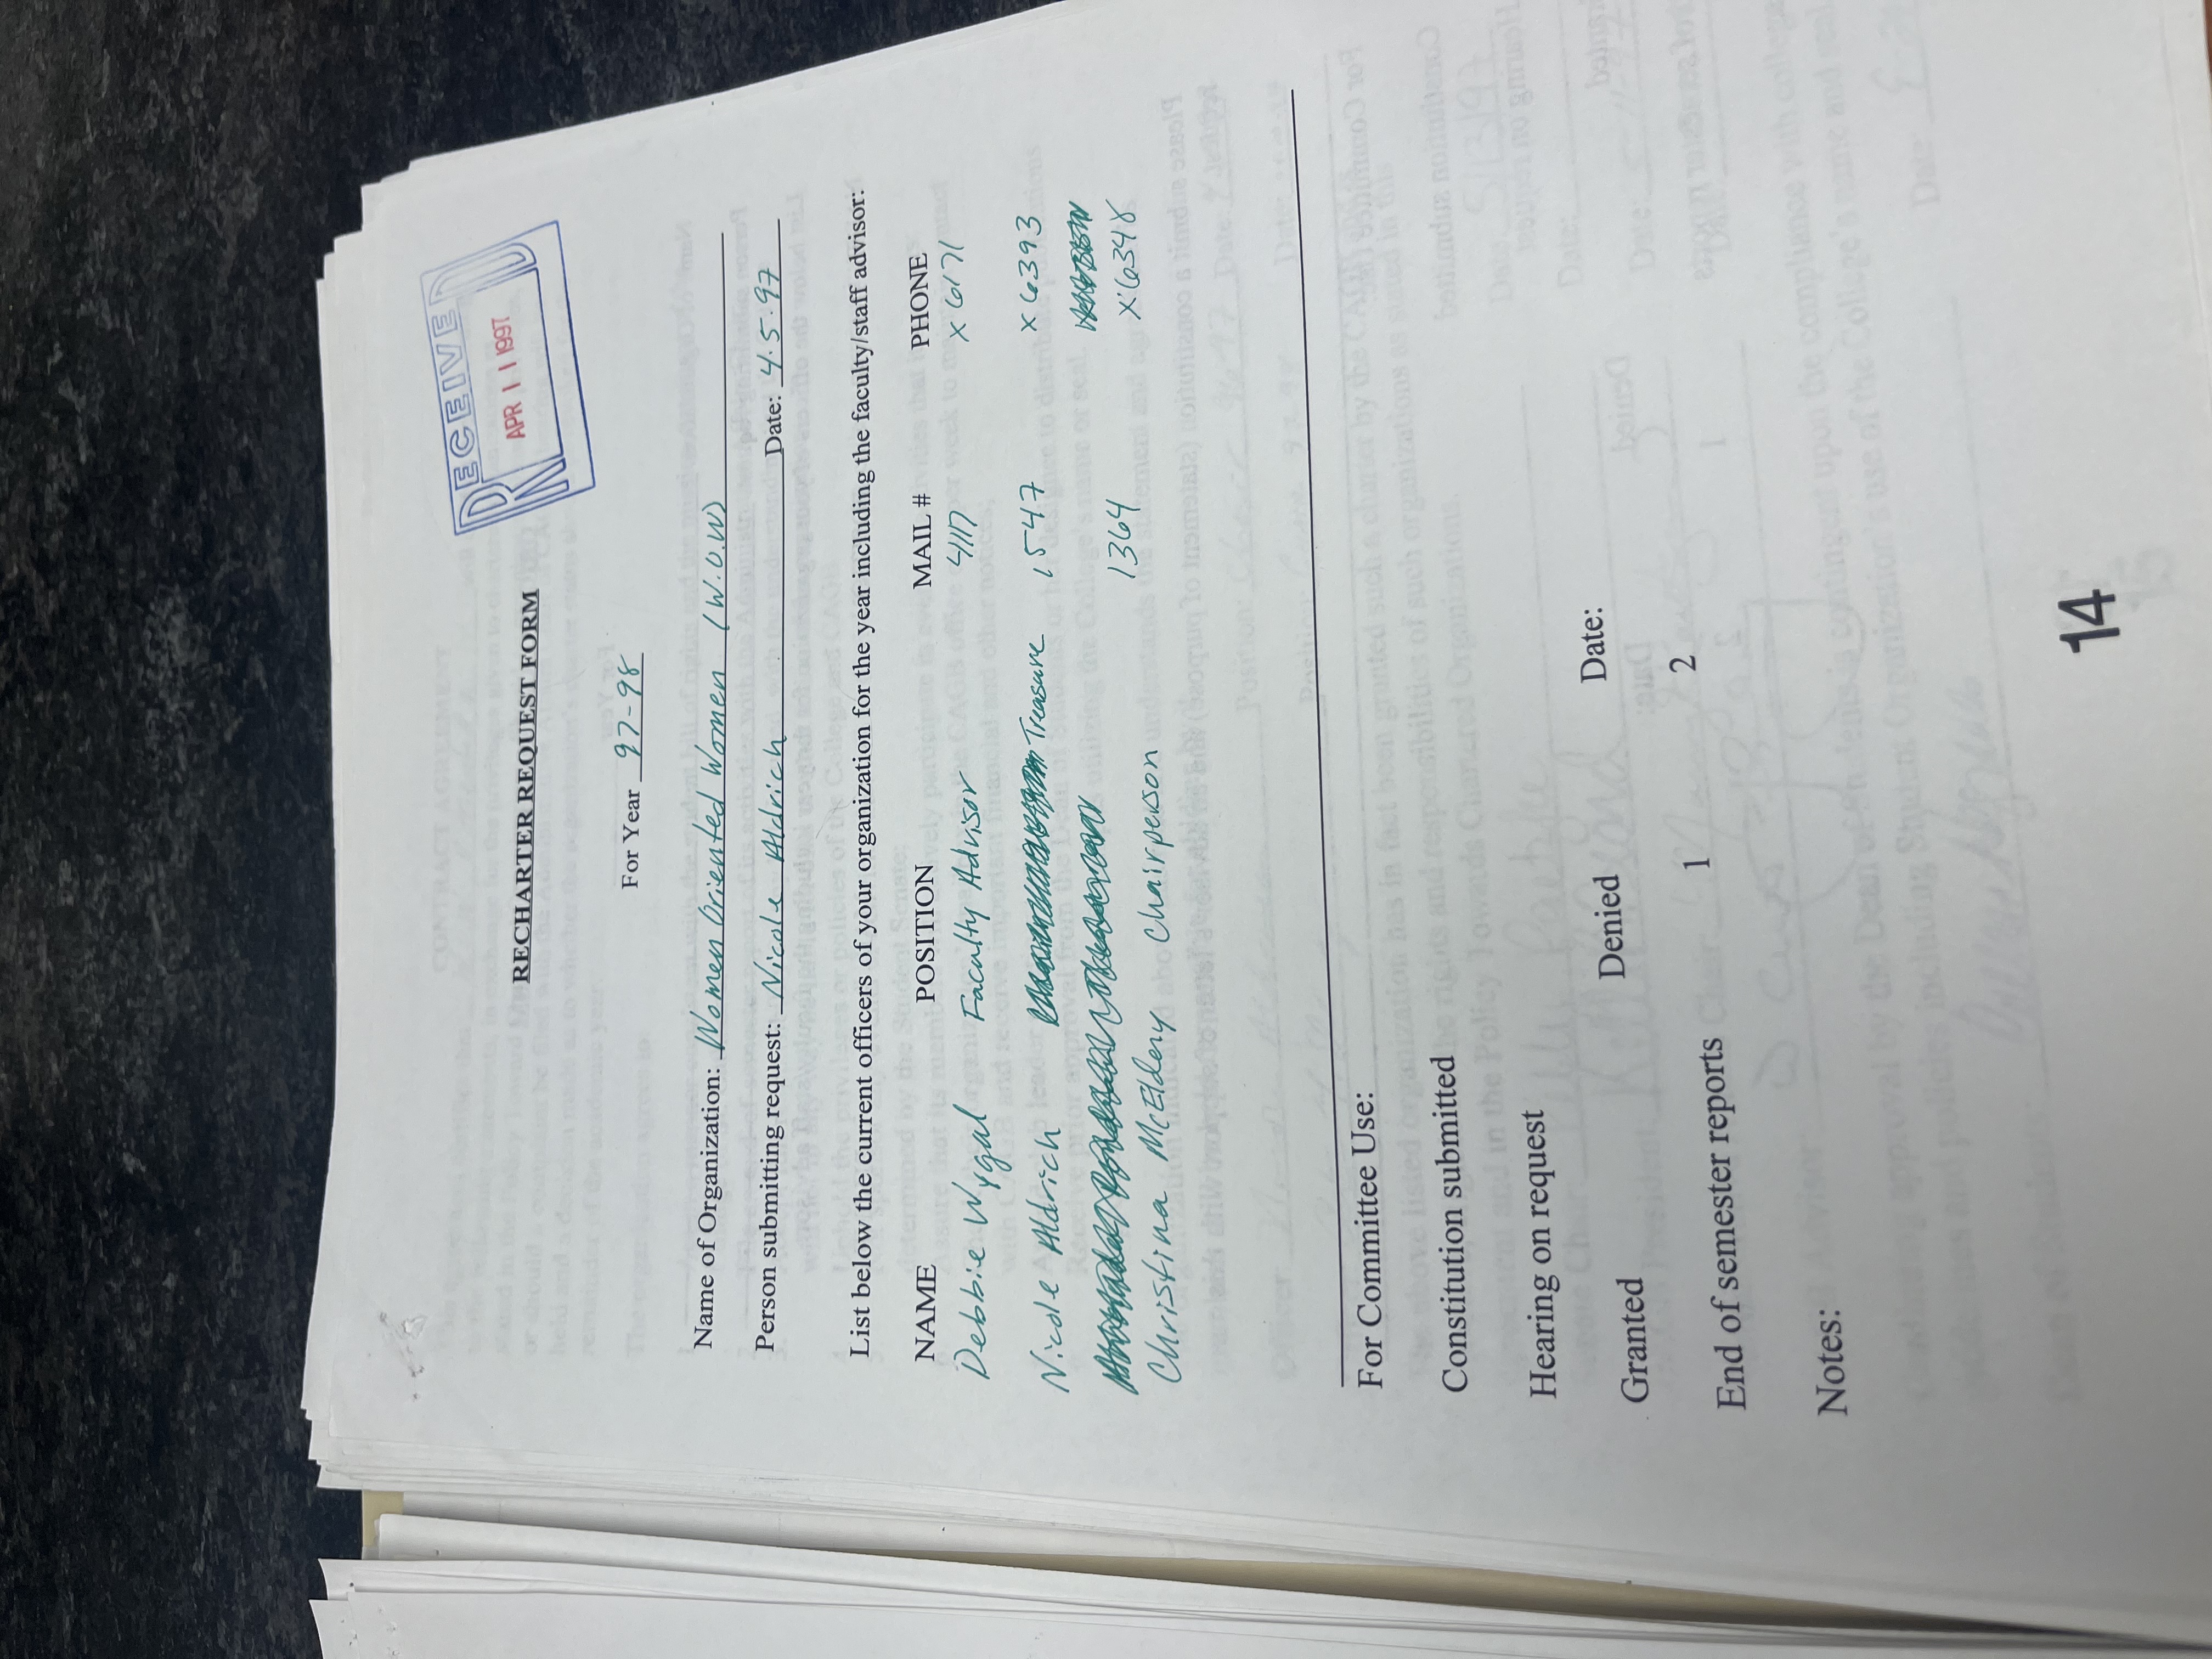 RECEIVED
APR 11 1997
RECHARTER REQUEST FORM
For Year 97-98
Name of Organization: Women Oriented Women (W.O.W)
Person submitting request: Nicole Aldrich Date: 4.5.97
List below the current officers of your organization for the year including the faculty/staff advisor:
NAME POSITION MAIL # PHONE
Debbie Wygal Faculty Advisor 4117 x6171
Nicole Aldrich Treasure 1547 x6393
Christina McEldery Chairperson 1364 x6348
For Committee Use:
Constitution submitted
Hearing on request
Granted Denied Date:
End of semester reports 1 2
Notes:
14